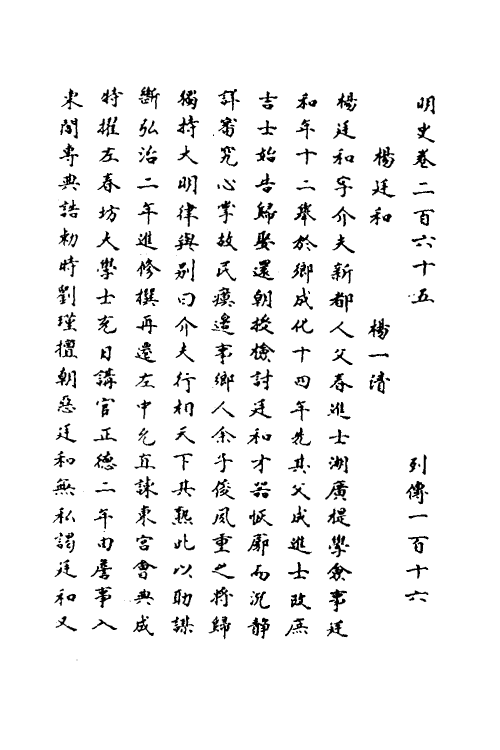 明史卷二百六十五　列傳一百十六
楊廷和　楊一清
楊廷和字介夫新都人父春進士湖廣提學僉事廷
和年十二舉於鄉成化十四年先其父成進士改庶
吉士始告歸娶還朝授檢討廷和才器恢廓而沉静
詳審究心掌故民瘼邊事鄉人余子俊夙重之將歸
獨持大明律與别曰介夫行相天下其熟此以助謀
斷弘治二年進修撰再遷左中允直諫東宮會典成
特擢左春坊大學士充日講官正德二年由詹事入
東閣專典誥勅時劉瑾擅朝惡廷和無私謁廷和又